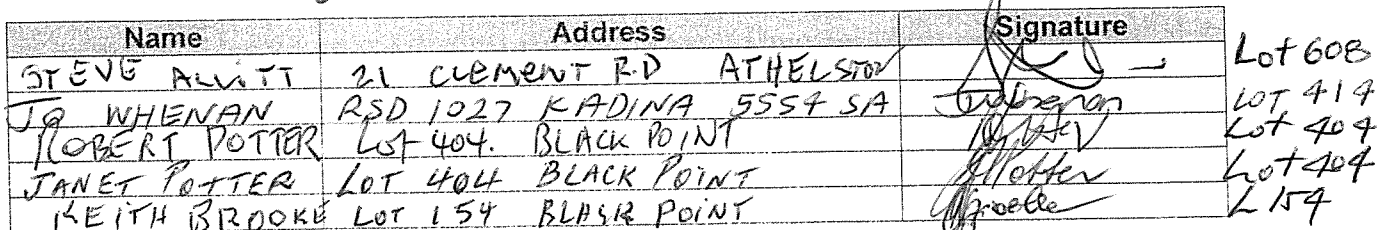 Name Address Signature
STEVE ALVITT 21 CLEMENT RD ATHELSTON Lot 608
JO WHENAN RSD 1027 KADINA 5554 SA JWhenan LOT 414
ROBERT POTTER Lot 404. BLACK POINT Lot 404
JANET POTTER LOT 404 BLACK POINT JPotter Lot 404
KEITH BROOKE LOT 154 BLACK POINT L 154